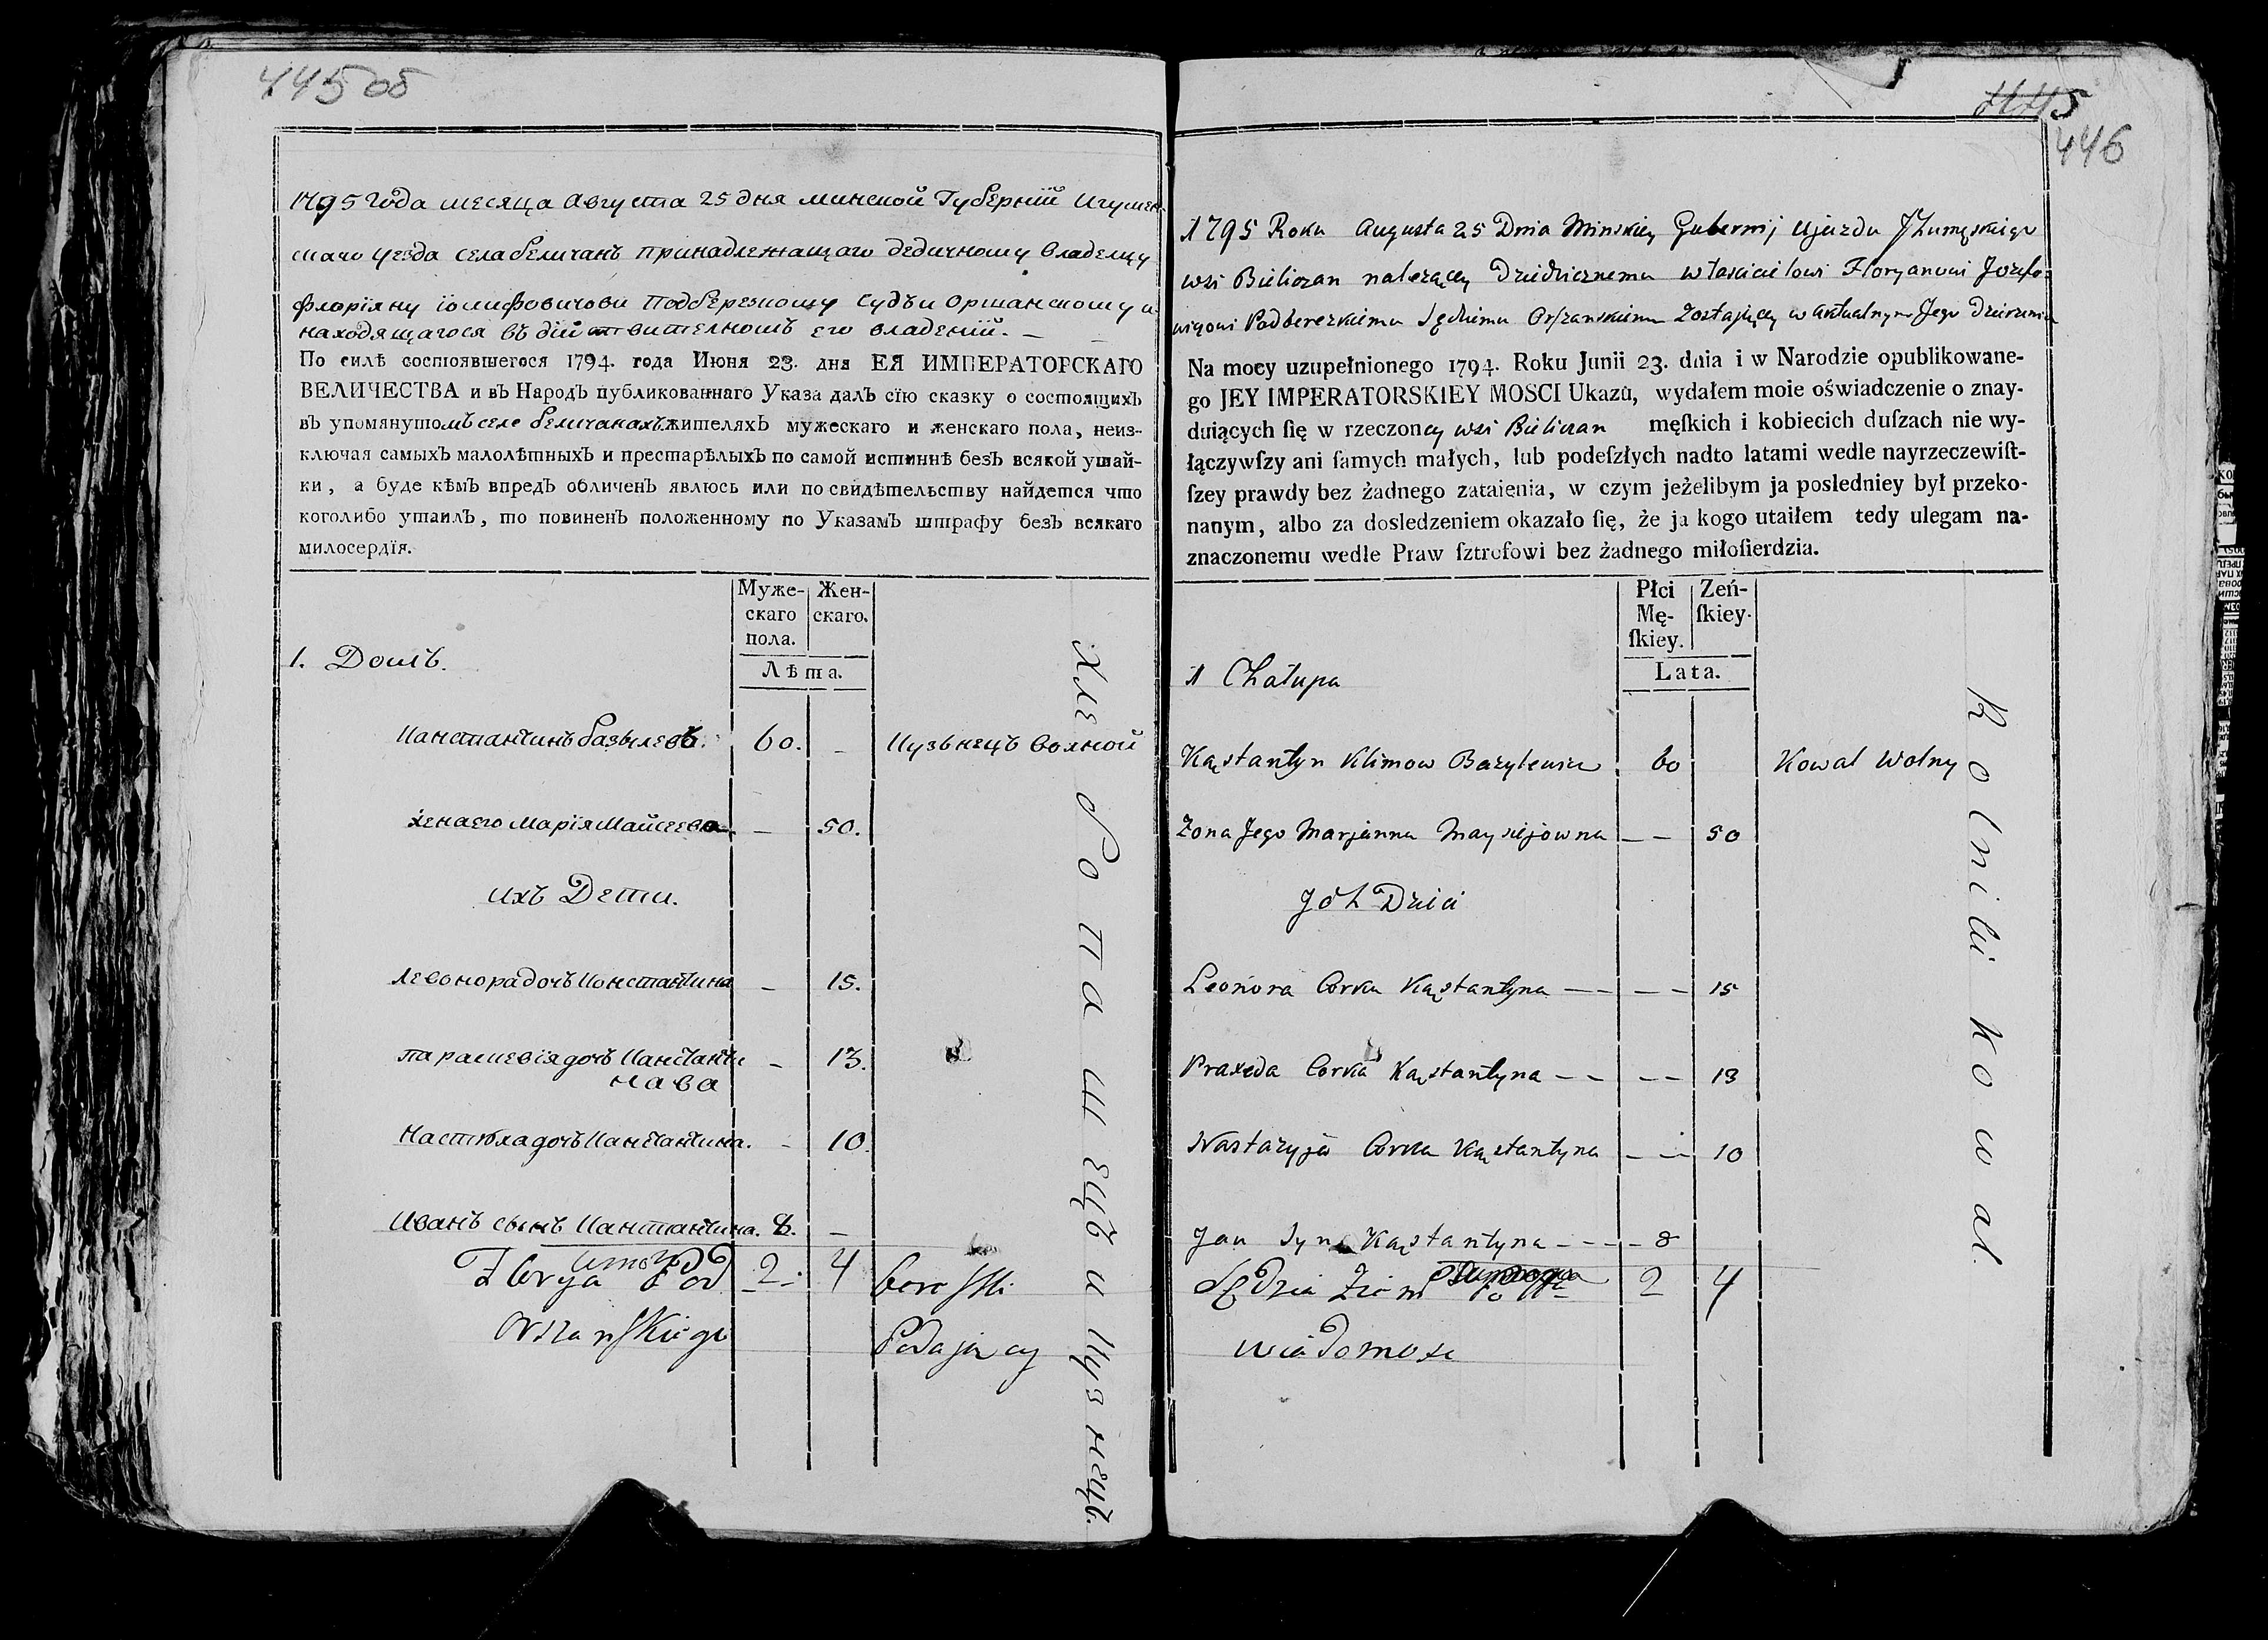 445 об
1795 Года месяца Августа 25 дня минской Губернїй Игумен-
скаго уезда села беличанъ принадлежащаго дедичному владелцу
Флорїяну їосифовичови Подберезкому судъи Оршанскому и
находящагося въ дїйствителномъ его владенїй. —
По силѣ состоявшегося 1794. года Июня 23. дня ЕЯ ИМПЕРАТОРСКАГО
ВЕЛИЧЕСТВА и въ Народъ публикованнаго Указа далъ сїю сказку о состоящихъ
въ упомянутомъ селе беличанахъ жителяхъ мужескаго и женскаго пола, неиз-
ключая самыхъ малолѣтныхъ и престарѣлыхъ по самой истиннѣ безъ всякой утай-
ки, а буде кѣмъ впредъ обличенъ явлюсь или по свидѣтельству найдется что
коголибо утаилъ, то повиненъ положенному по Указамъ штрафу безъ всякаго
милосердїя.
Муже-
скаго
пола.
Жен-
скаго.
Лѣта.
1. Домъ.
Канстантинъ базылевъ. 60. – Кузьнецъ волной
жена его Марїя Майсеева. – 50.
ихъ Дети.
Левонора дочъ Константина – 15.
парасцевїя дочъ Канстанти
нава – 13.
Настѣла дочъ Канстантина. – 10.
Иванъ сынъ Канстантина. 8. –
2 4
Florya Pod bereski
Orszanskiego Podający
Хлеборопашецъ и Кузнецъ.
445
446
1795 Roku Augusta 25 Dnia Minskiey Gubernij Ujazdu Jhumęskiego
wsi Bieliczan nalezącey Dziedzicznemu własicielowi Floryanowi Jozefo-
wiczowi Podberezkiemu Sędziemu Orszanskiemu Zostającey w aktualnym Jego Dzierzeniu
Na mocy uzupełnionego 1794. Roku Junii 23. dnia i w Narodzie opublikowane-
go JEY IMPERATORSKIEY MOSCI Ukazu, wydałem moie oświadczenie o znay-
duiących ſię w rzeczoney wsi Bieliczan męſkich i kobiecich duſzach nie wy-
łączywſzy ani ſamych małych, lub podeſzłych nadto latami wedle nayrzeczewiſt-
ſzey prawdy bez żadnego zataienia, w czym jeżelibym ja posledniey był przeko-
nanym, albo za dosledzeniem okazało ſię, że ja kogo utaiłem tedy ulegam na-
znaczonemu wedle Praw ſztrofowi bez żadnego miłoſierdzia.
Płci
Mę-
ſkiey.
Zeń-
ſkiey.
Lata.
1 Chałupa
Kąstantyn Klimow Bazylewicz 60 Kowal Wolny
Zona Jego Marjanna Maysiejowna — 50
Jch Dzieci
Leonora Corka Kąstantyna — — 15
Praxeda Corka Kąstantyna — — 13
Nastazyja Corka Kąstantyna — — 10
Jan Syn Kąstantyna — — 8
Sędzia Ziem 2 4
wiadomosc
Rolnik i Kowal.